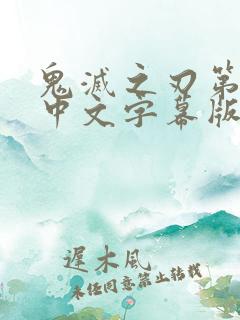 鬼滅之刃第
中文字幕版
遲木風
未經同意禁止轉載